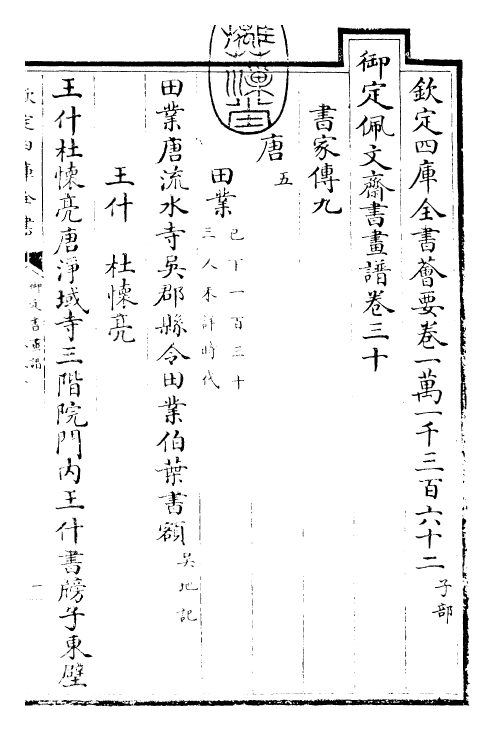 欽定四庫全書薈要卷一萬一千三百六十二 子部
御定佩文齋書畫譜卷三十
書家傳九
唐 五
田業 已下一百三十
三人未詳時代
田業唐流水寺吳郡縣令田業伯葉書額 吳地記
王什 杜懷亮
王什杜懷亮唐淨域寺三階院門內王什書牓子東壁
欽定四庫全書
御定書畫譜